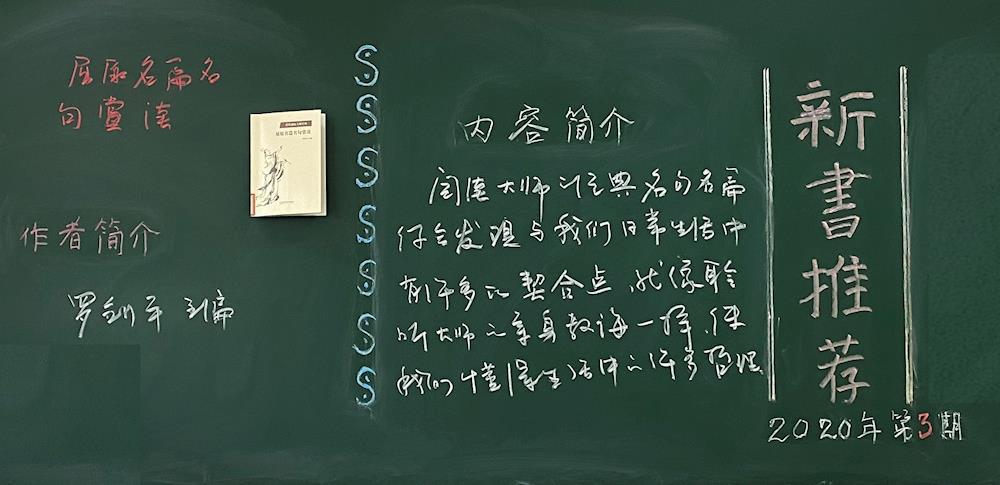 屈原名篇名
句赏读
作者简介
罗剑平 主编
屈原名篇名句赏读
内容简介
阅读大师的经典名句名篇
你会发现与我们日常生活中
有许多的契合点，就像聆
听大师的亲身教诲一样，使
我们懂得生活中的许多哲理.
新書推荐
2020年第3期